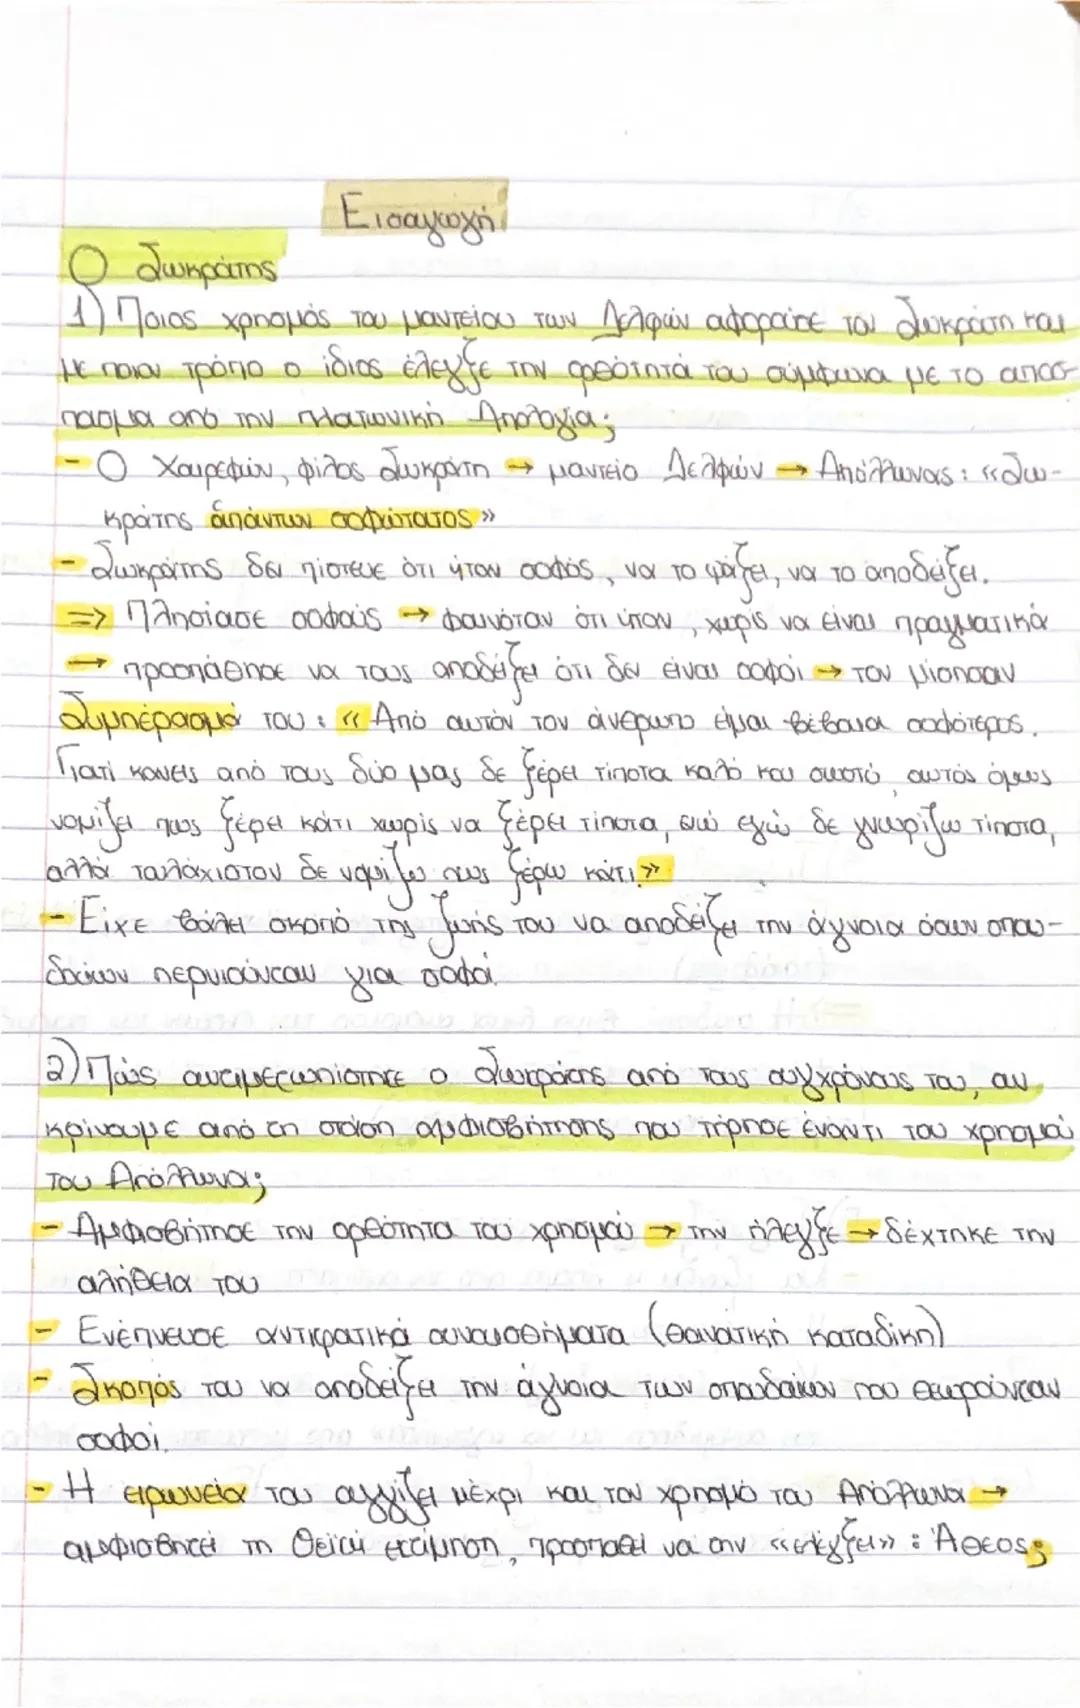 Εισαγωγή
Ο Σωκράτης
1) Ποιος χρησμός του μαντείου των Δελφών αφορούσε τον Σωκράτη και
με ποιον τρόπο ο ίδιος έλεγξε την ορθότητά του σύμφωνα με το απόσ-
πασμα από την πλατωνική Απολογία;
- Ο Χαιρεφών, φίλος Σωκράτη → μαντείο Δελφών → Απόλλωνας: «Σω-
κράτης ἁπάντων σοφώτατος»
- Σωκράτης δεν πίστευε ότι ήταν σοφός, να το ψάξει, να το αποδείξει.
=> Πλησίασε σοφούς → φαινόταν ότι ήταν, χωρίς να είναι πραγματικά
→ προσπάθησε να τους αποδείξει ότι δεν είναι σοφοί → τον μίσησαν
Συμπέρασμά του: «Από αυτόν τον άνθρωπο είμαι βέβαια σοφότερος.
Γιατί κανείς από τους δύο μας δε ξέρει τίποτα καλό και σωστό, αυτός όμως
νομίζει πως ξέρει κάτι χωρίς να ξέρει τίποτα, ενώ εγώ δε γνωρίζω τίποτα,
αλλά τουλάχιστον δε νομίζω πως ξέρω κάτι.»
- Είχε βάλει σκοπό της ζωής του να αποδείξει την άγνοια όσων σπου-
δαίων περνιούνταν για σοφοί.
2) Πώς αντιμετωπίστηκε ο Σωκράτης από τους συγχρόνους του, αν
κρίνουμε από τη στάση αμφισβήτησης που τήρησε έναντι του χρησμού
του Απόλλωνα;
- Αμφισβήτησε την ορθότητα του χρησμού → την ήλεγξε → δέχτηκε την
αλήθεια του
- Ενέπνευσε αντικρατικά συναισθήματα (θανατική καταδίκη)
- Σκοπός του να αποδείξει την άγνοια των σπουδαίων που θεωρούνταν
σοφοί.
- Η ειρωνεία του αγγίζει μέχρι και τον χρησμό του Απόλλωνα →
αμφισβητεί τη θεϊκή εκτίμηση, προσπαθεί να την «ελέγξει»: Άθεος;